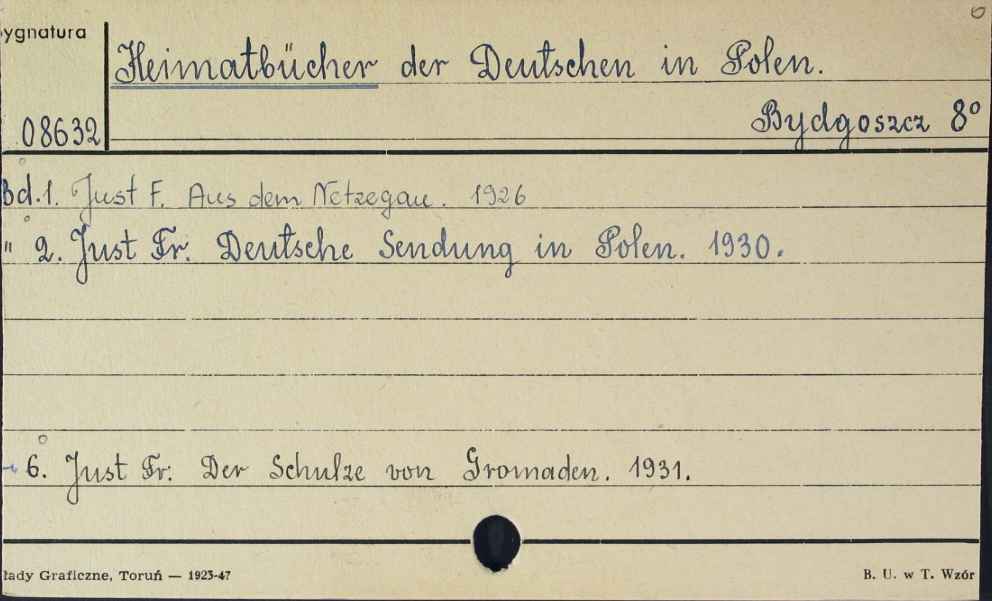 ygnatura
Heimatbücher der Deutschen in Polen.
08632
Bydgoszcz 8°
Bd.1. Just F. Aus dem Netzegau. 1926
" 2. Just Fr. Deutsche Sendung in Polen. 1930.
6. Just Fr. Der Schulze von Gromaden. 1931.
łady Graficzne, Toruń — 1923-47
B. U. w T. Wzór